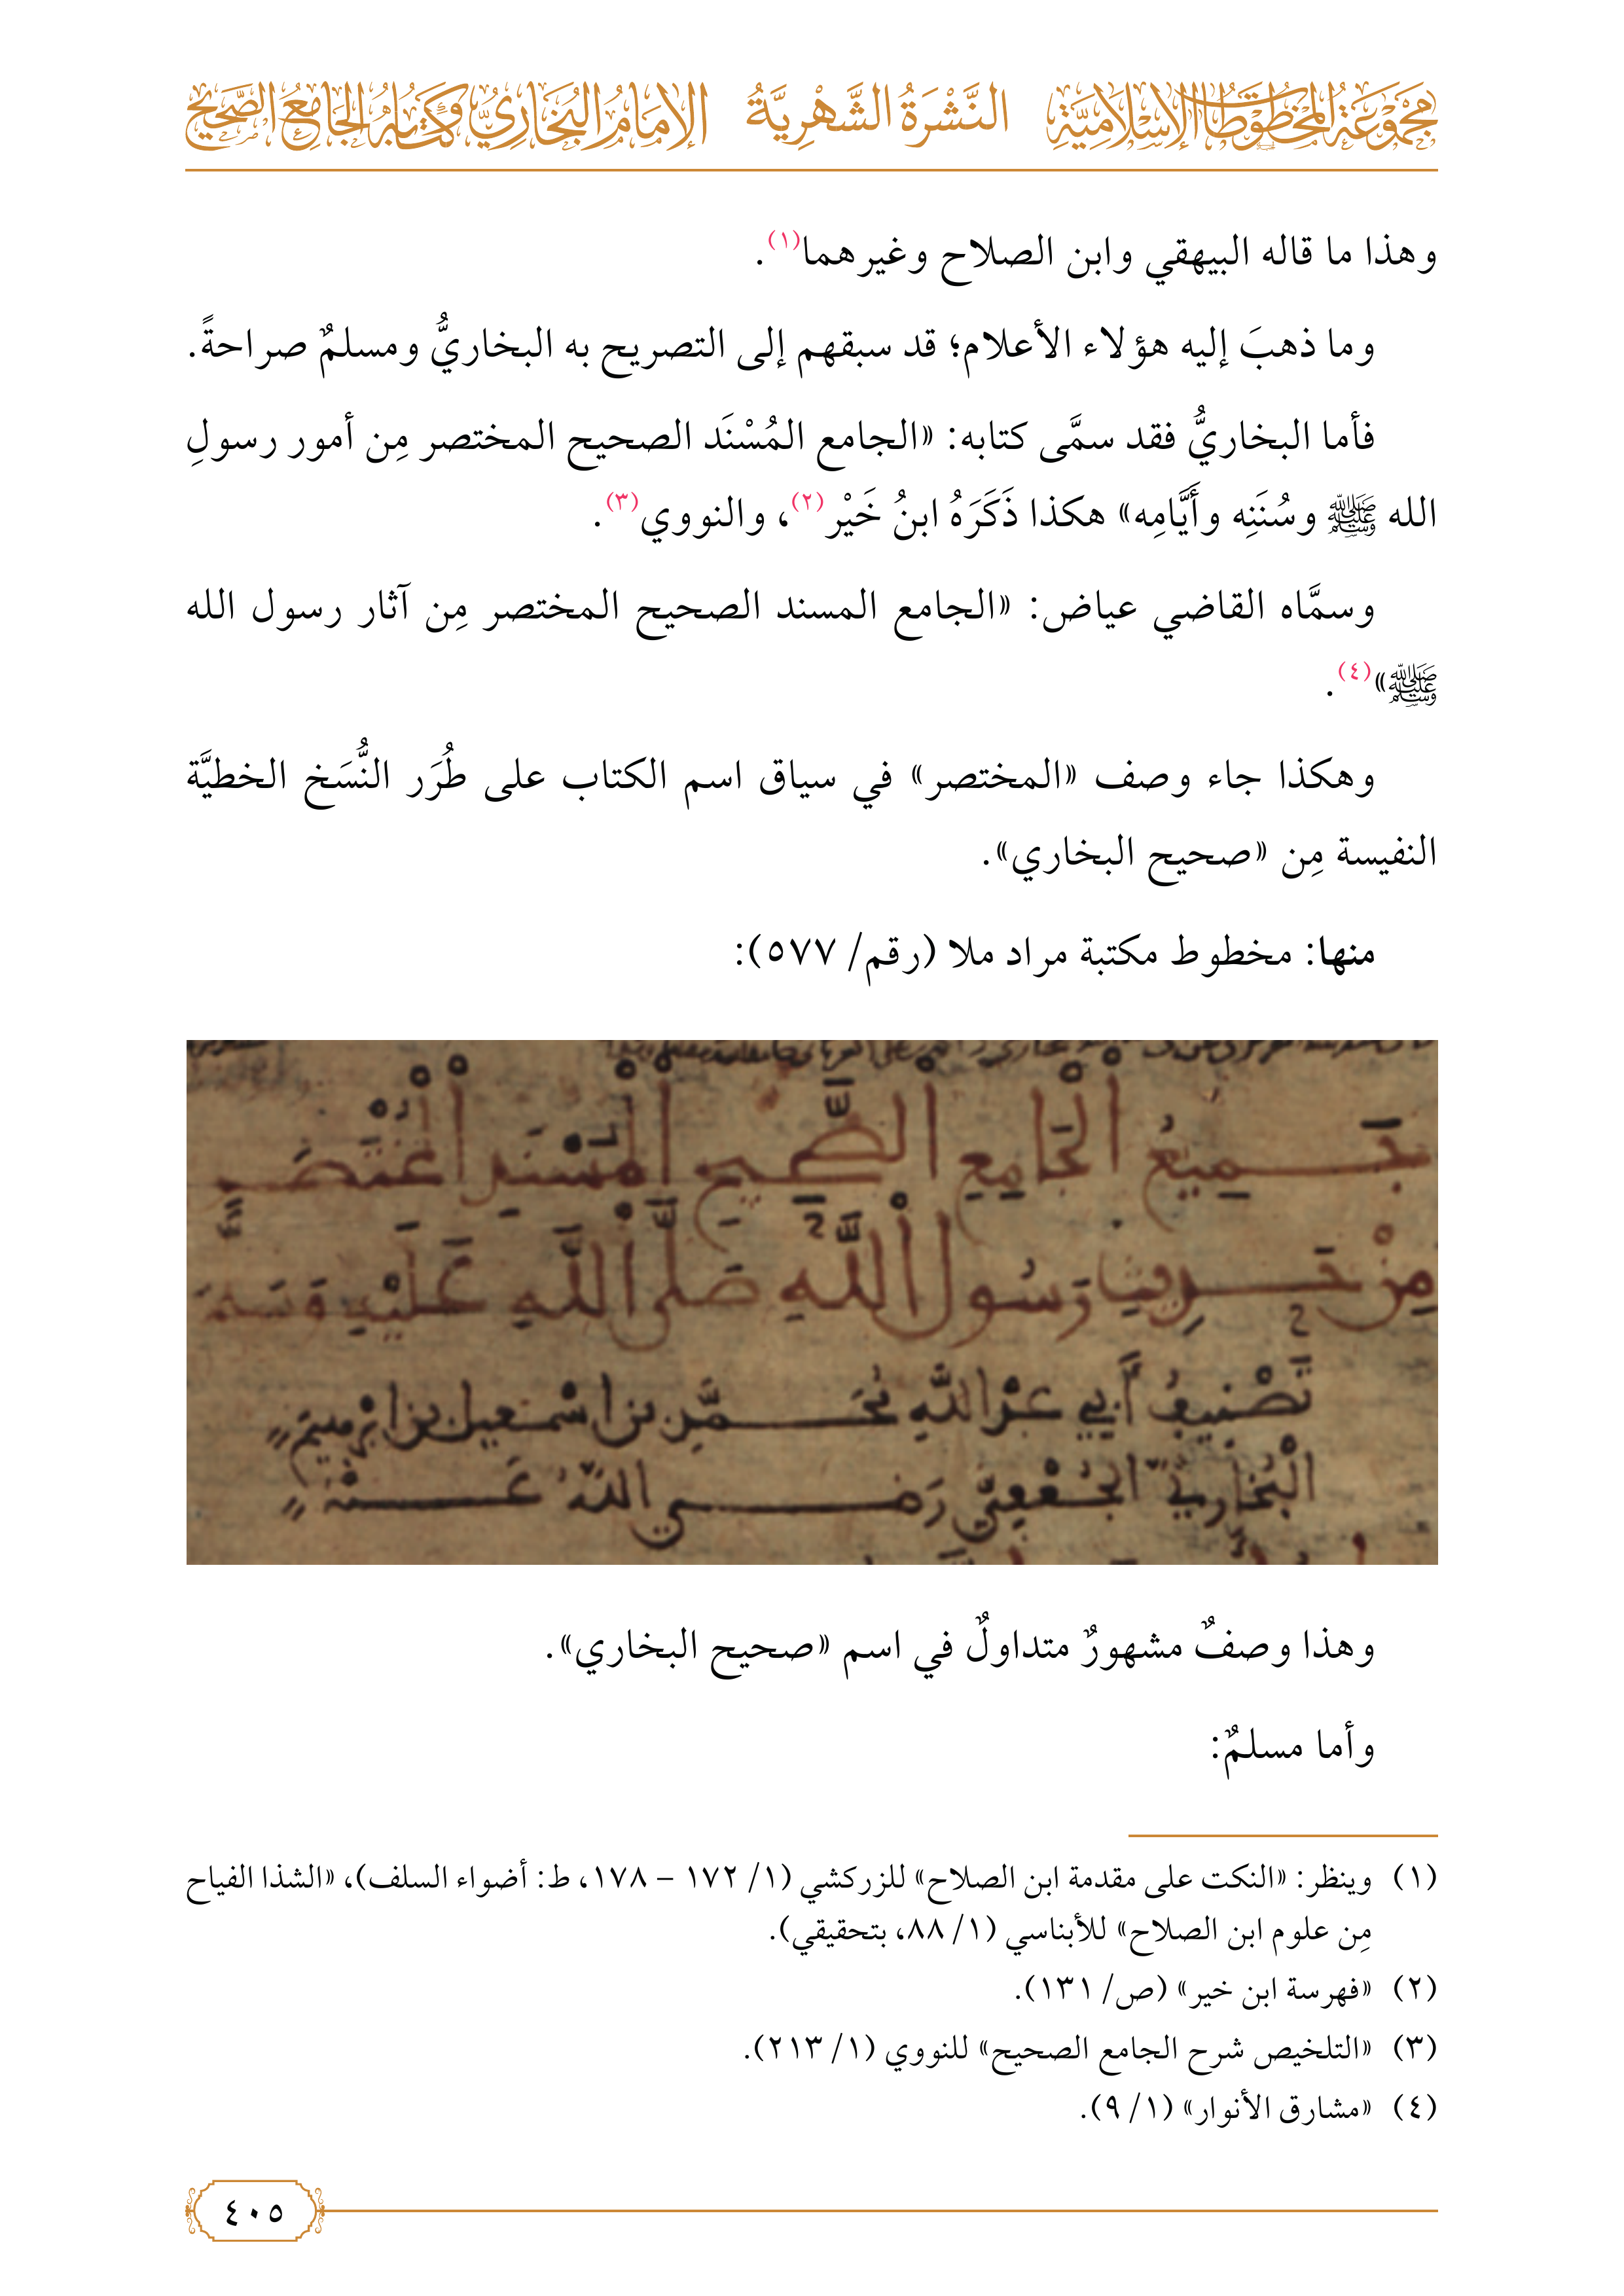 مَجْمُوعَةُ المَخْطُوطَاتِ الإِسْلَامِيَّةِ النَّشْرَةُ الشَّهْرِيَّةُ الإمَامُ البُخَارِيُّ وَكِتَابُهُ الجَامِعُ الصَّحِيحُ
وهذا ما قاله البيهقي وابن الصلاح وغيرهما(١).
وما ذهبَ إليه هؤلاء الأعلام؛ قد سبقهم إلى التصريح به البخاريُّ ومسلمٌ صراحةً.
فأما البخاريُّ فقد سمَّى كتابه: «الجامع المُسْنَد الصحيح المختصر مِن أمور رسولِ
الله ﷺ وسُنَنِه وأَيَّامِه» هكذا ذَكَرَهُ ابنُ خَيْر(٢)، والنووي(٣).
وسمَّاه القاضي عياض: «الجامع المسند الصحيح المختصر مِن آثار رسول الله
ﷺ»(٤).
وهكذا جاء وصف «المختصر» في سياق اسم الكتاب على طُرَر النُّسَخ الخطيَّة
النفيسة مِن «صحيح البخاري».
منها: مخطوط مكتبة مراد ملا (رقم/ ٥٧٧):
جَمِيعُ الْجَامِعِ الصَّحِيحِ الْمُسْنَدِ الْمُخْتَصَرِ
مِنْ حَدِيثِ رَسُولِ اللَّهِ صَلَّى اللَّهِ عَلَيْهِ وَسَلَّمَ
تَصْنِيفُ أَبِي عَبْدِ اللَّهِ مُحَمَّدِ بْنِ اسْمٰعِيلَ بْنِ ابْرٰهِيمَ
الْبُخَارِيِّ الْجُعْفِيِّ رَضِيَ اللَّهُ عَنْهُ
وهذا وصفٌ مشهورٌ متداولٌ في اسم «صحيح البخاري».
وأما مسلمٌ:
(١) وينظر: «النكت على مقدمة ابن الصلاح» للزركشي (١/ ١٧٢ – ١٧٨، ط: أضواء السلف)، «الشذا الفياح
مِن علوم ابن الصلاح» للأبناسي (١/ ٨٨، بتحقيقي).
(٢) «فهرسة ابن خير» (ص/ ١٣١).
(٣) «التلخيص شرح الجامع الصحيح» للنووي (١/ ٢١٣).
(٤) «مشارق الأنوار» (١/ ٩).
٤٠٥